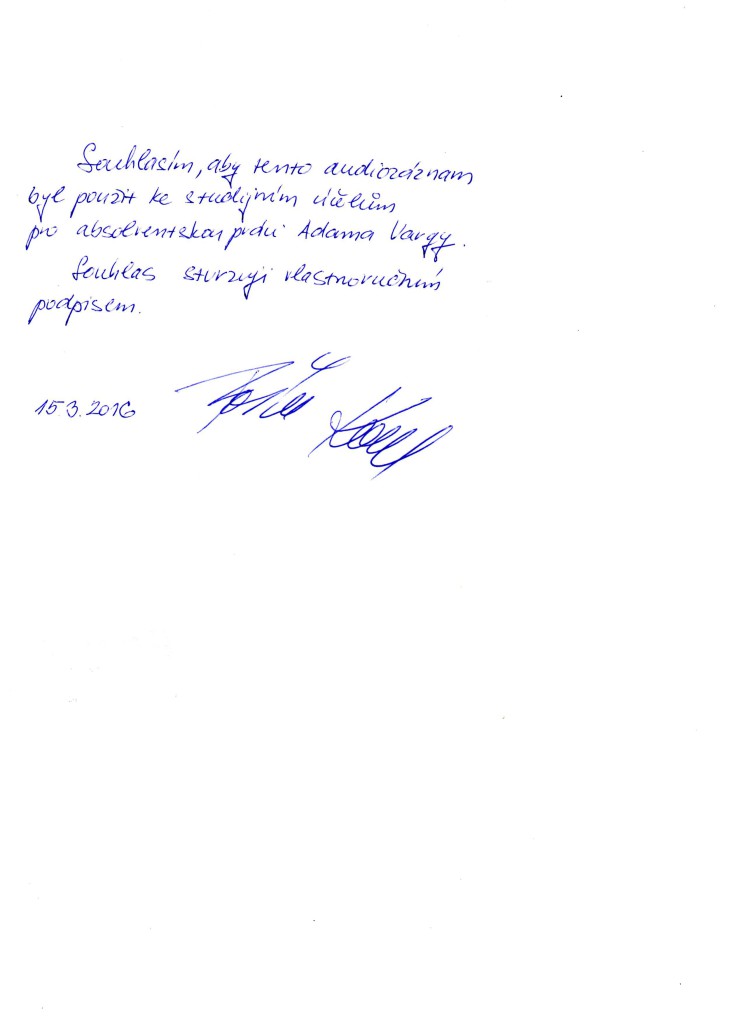 Souhlasím, aby tento audiozáznam
byl použit ke studijním účelům
pro absolventskou práci Adama Vargy.
Souhlas stvrzuji vlastnoručním
podpisem.
15.3.2016